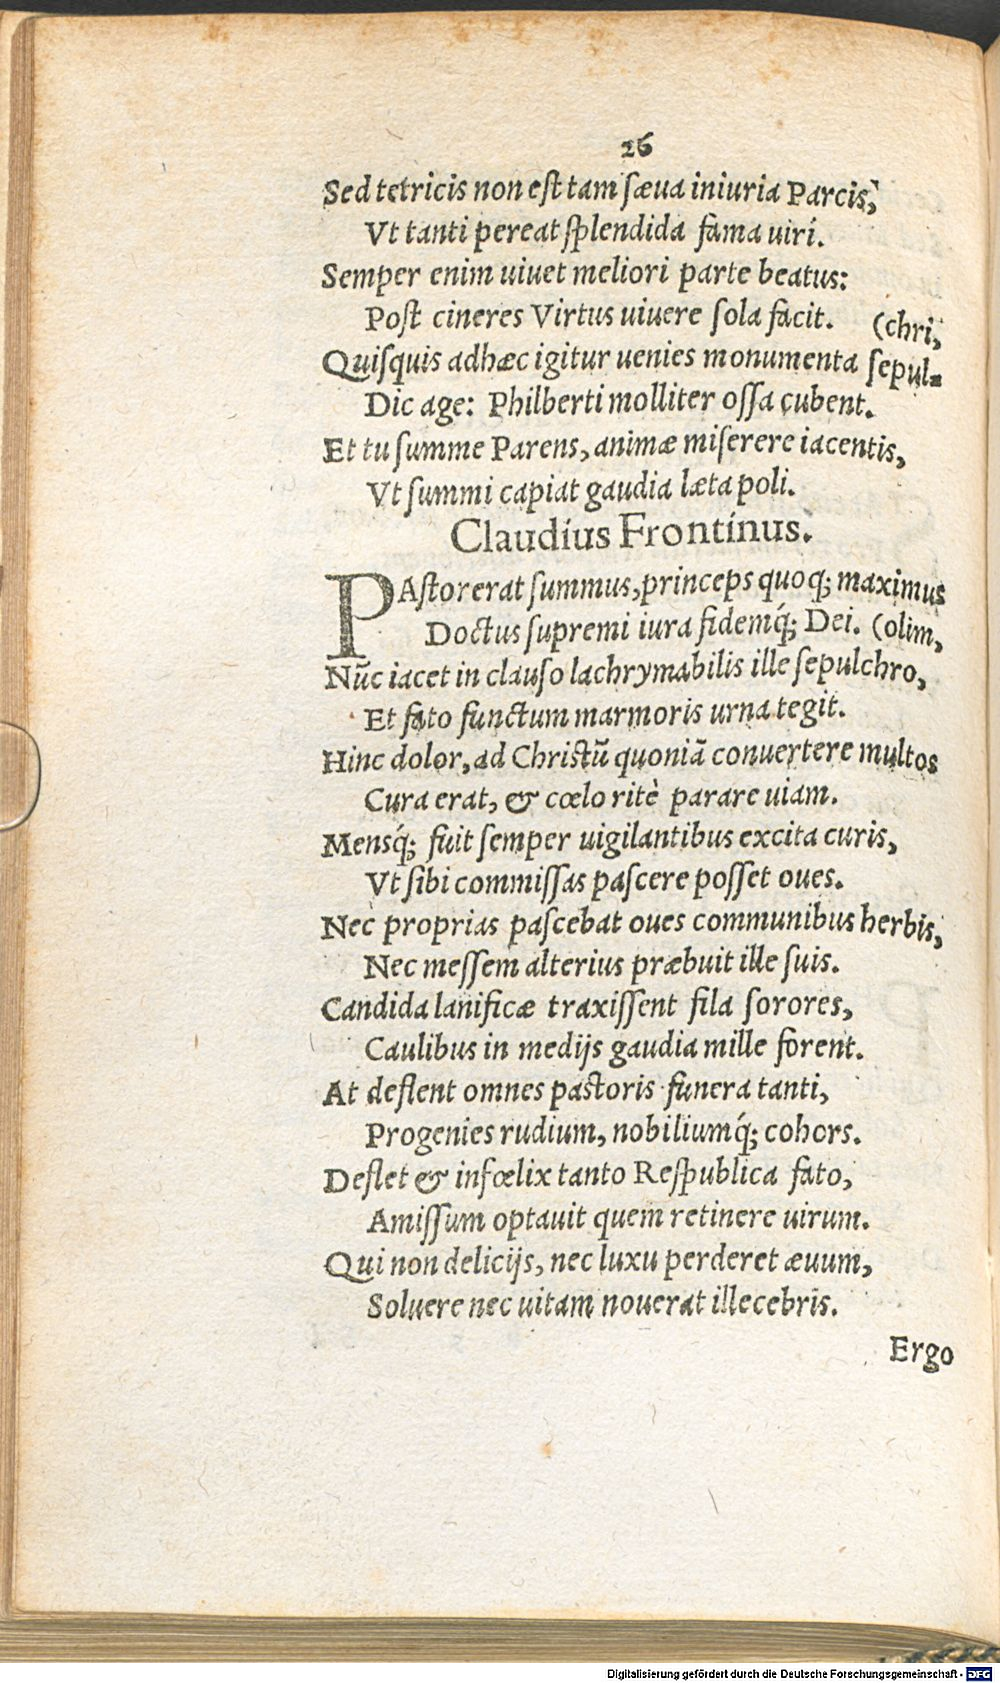 26
Sed tetricis non est tam sæua iniuria Parcis,
Vt tanti pereat splendida fama uiri.
Semper enim uiuet meliori parte beatus:
Post cineres Virtus uiuere sola facit. (chri,
Quisquis ad hæc igitur uenies monumenta sepul-
Dic age: Philberti molliter ossa cubent.
Et tu summe Parens, animæ miserere iacentis,
Vt summi capiat gaudia læta poli.
Claudius Frontinus.
PAstor erat summus, princeps quoq; maximus
Doctus supremi iura fidemq́; Dei. (olim,
Nūc iacet in clauso lachrymabilis ille sepulchro,
Et fato functum marmoris urna tegit.
Hinc dolor, ad Christū quoniā conuertere multos
Cura erat, & cœlo ritè parare uiam.
Mensq́; fuit semper uigilantibus excita curis,
Vt sibi commissas pascere posset oues.
Nec proprias pascebat oues communibus herbis,
Nec messem alterius præbuit ille suis.
Candida lanificæ traxissent fila sorores,
Caulibus in medijs gaudia mille forent.
At deflent omnes pastoris funera tanti,
Progenies rudium, nobiliumq́; cohors.
Deflet & infœlix tanto Respublica fato,
Amissum optauit quem retinere uirum.
Qui non delicijs, nec luxu perderet æuum,
Soluere nec uitam nouerat illecebris.
Ergo
Digitalisierung gefördert durch die Deutsche Forschungsgemeinschaft - DFG